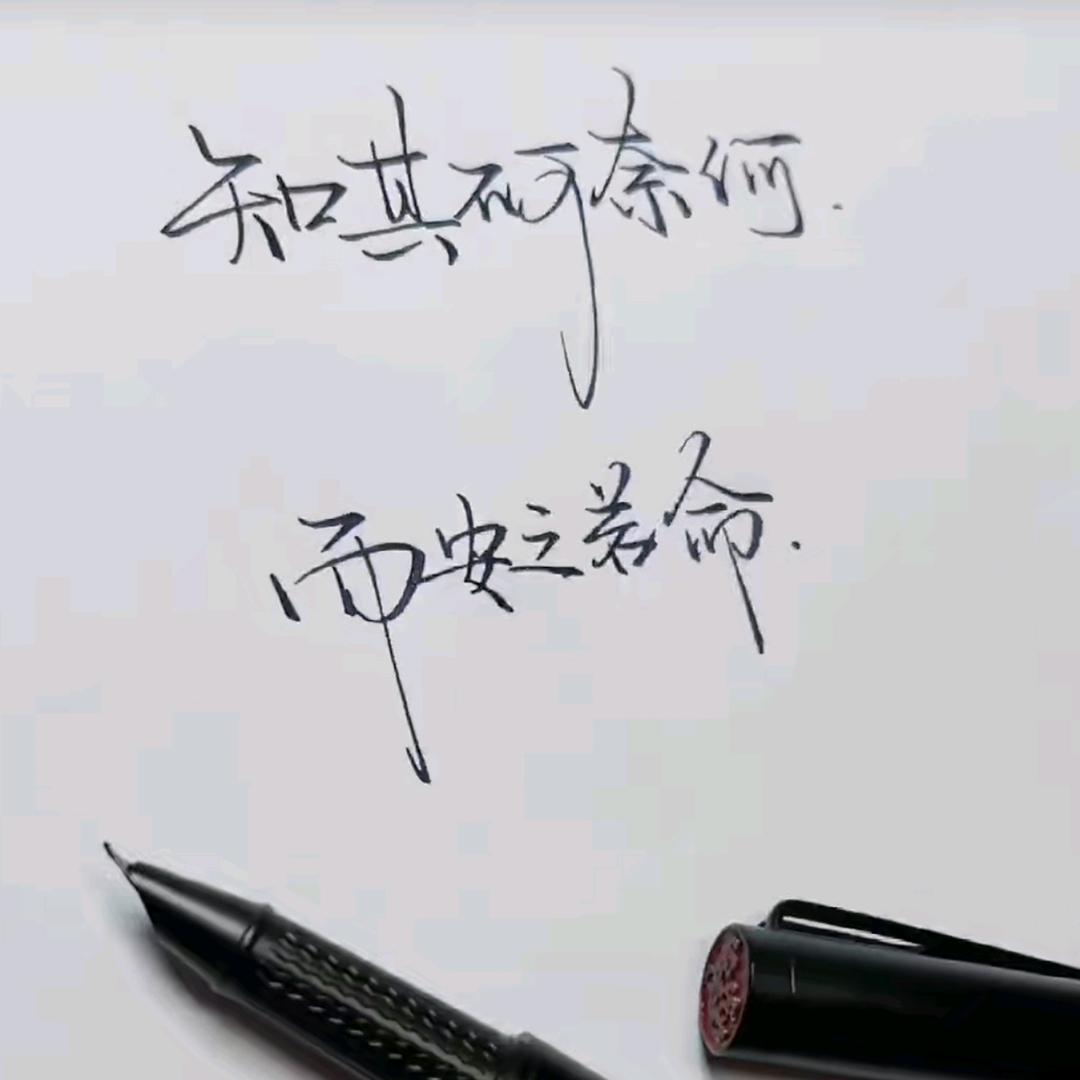 知其不可奈何.
而安之若命.